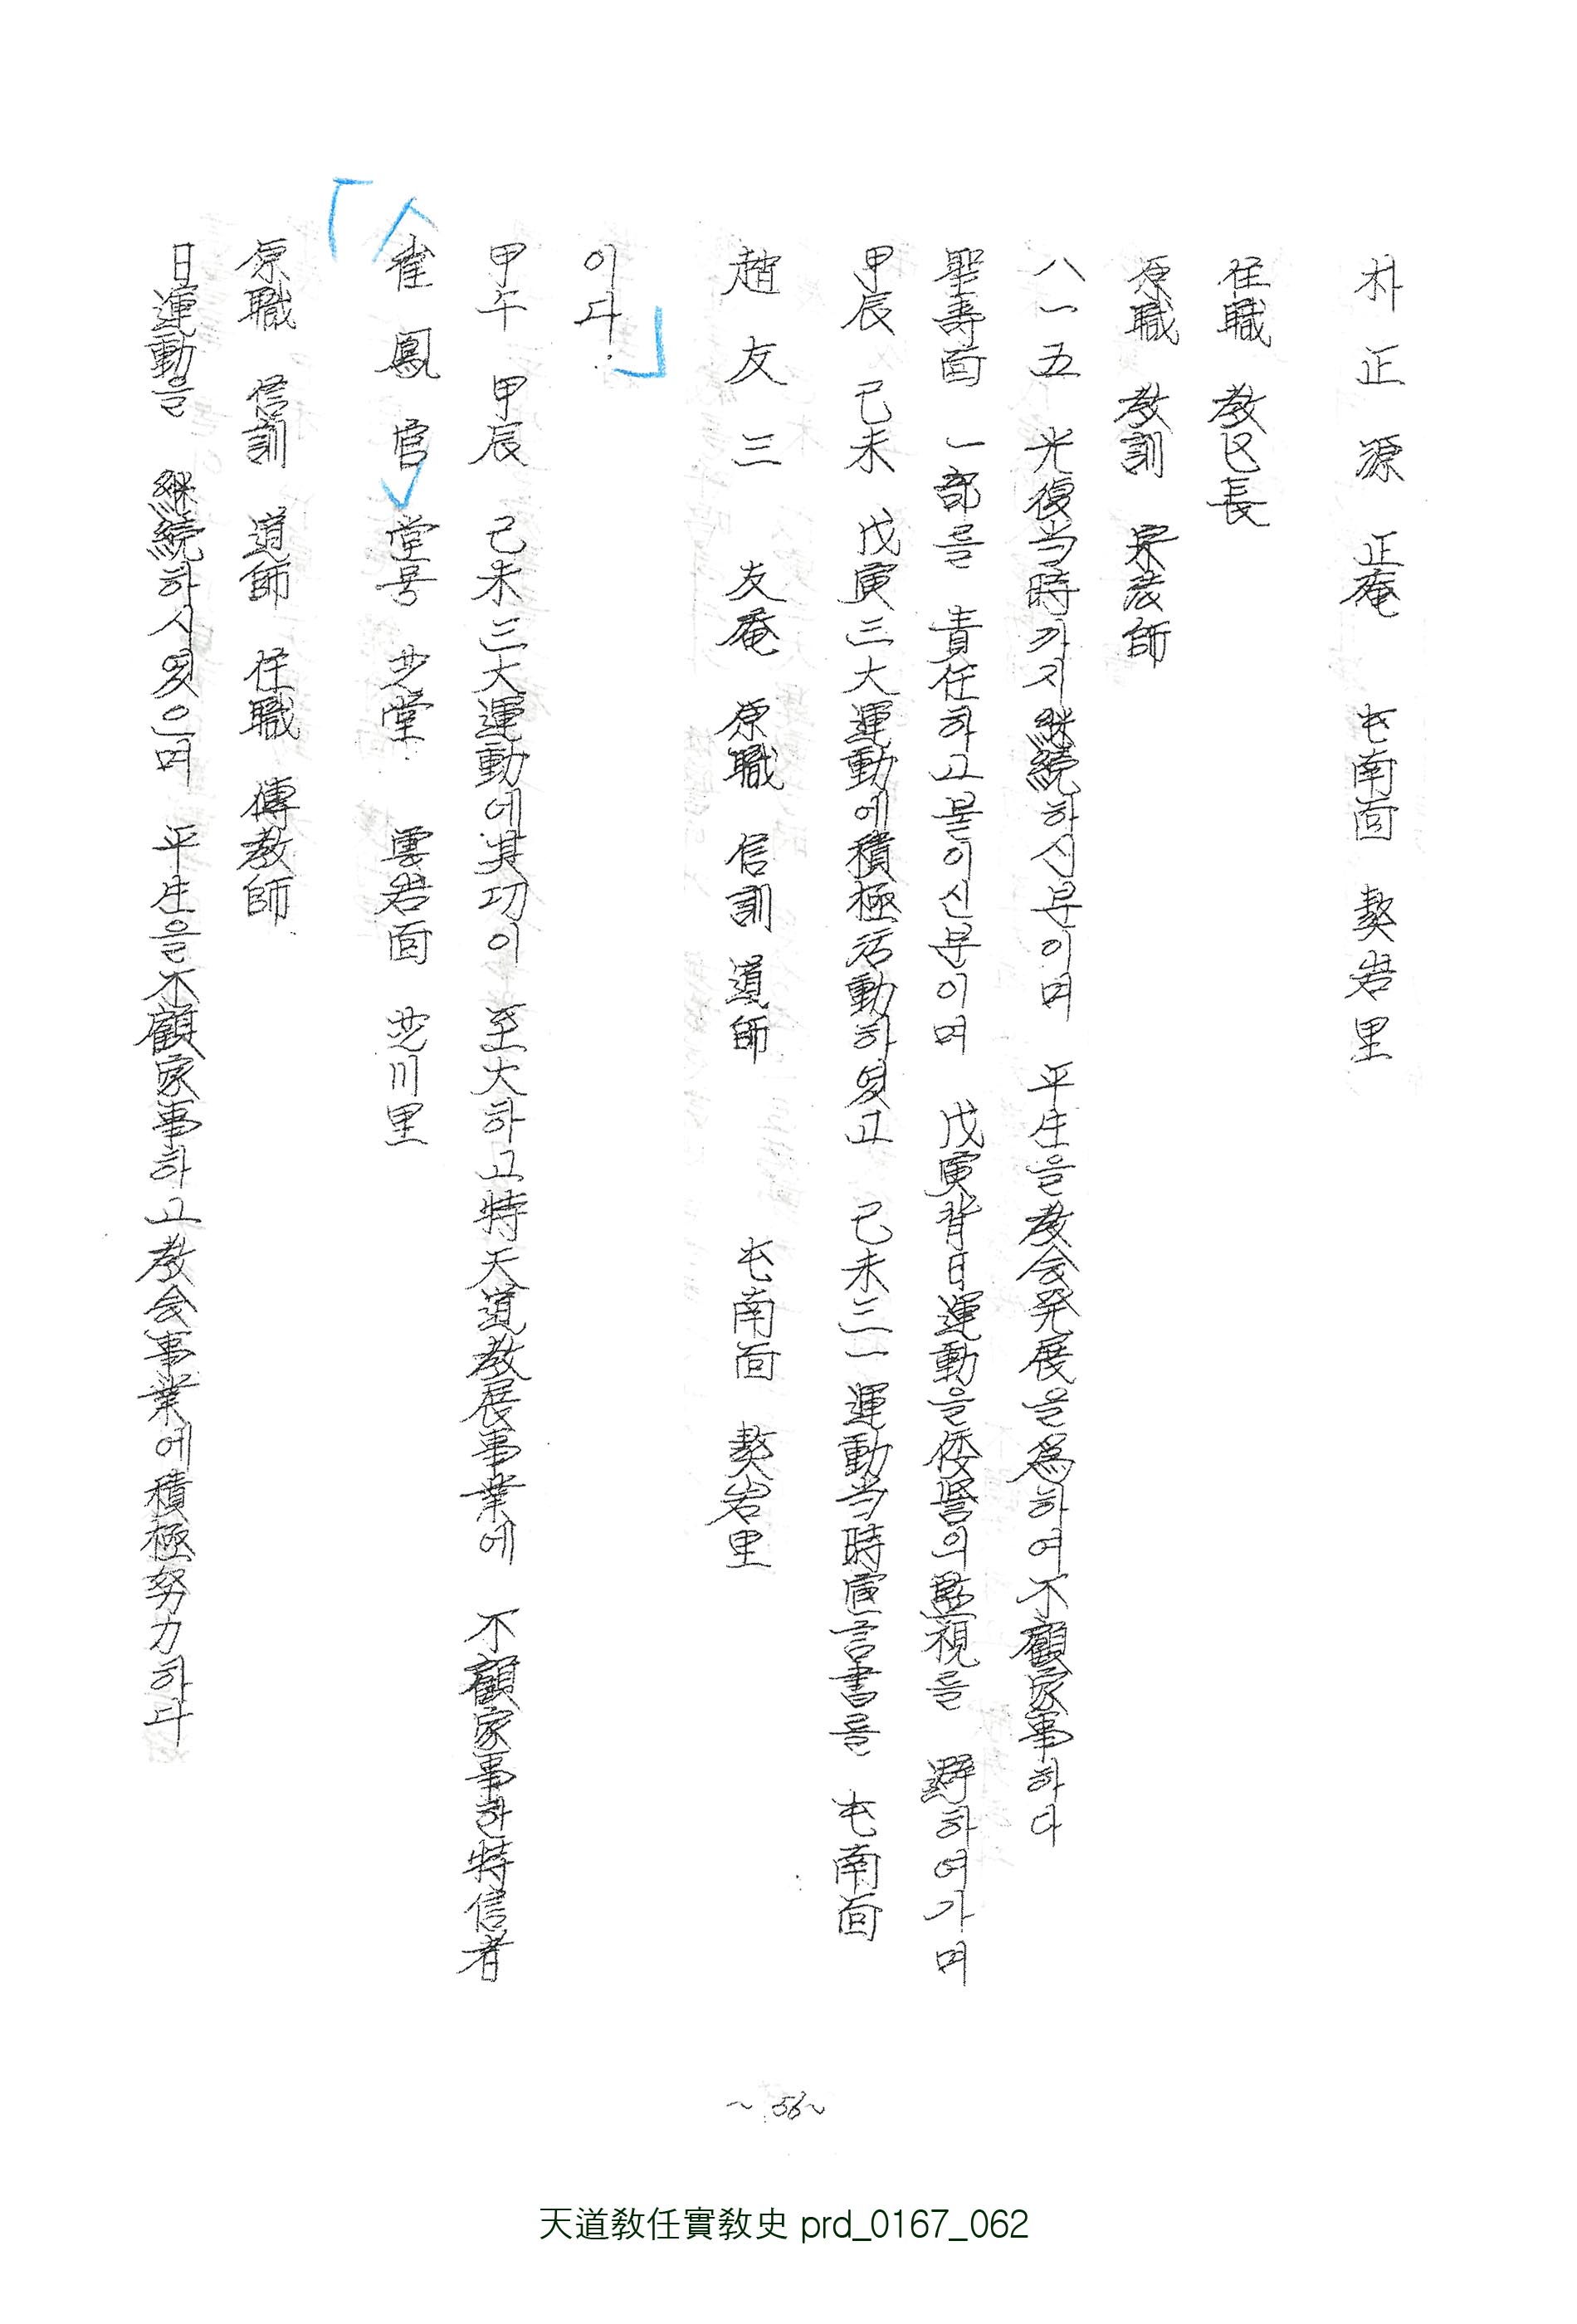 朴 正 源 正菴 屯南面 獒岩里
任職 教区長
原職 教訓 宗法師
八一五 光復当時까지 継続하신분이며 平生을教会発展을爲하여不顧家事하다
聖壽面 一部를 責任하고몰이신분이며 戊寅背日運動을倭署의監視를 避하여가며
甲辰 己未 戊寅三大運動에積極活動하였고 己未三一運動当時宣言書를 屯南面
趙 友 三 友菴 原職 信訓 道師 屯南面 獒岩里
이다.
甲午 甲辰 己未三大運動에其功이 至大하고特天道教展事業에 不顧家事한特信者
崔 鳳 官 堂号 少堂 雲岩面 芝川里
原職 信訓 道師 任職 傳教師
日運動을 継続하시였으며 平生을不顧家事하고教会事業에積極努力하다
~ 56 ~
天道教任實教史 prd_0167_062